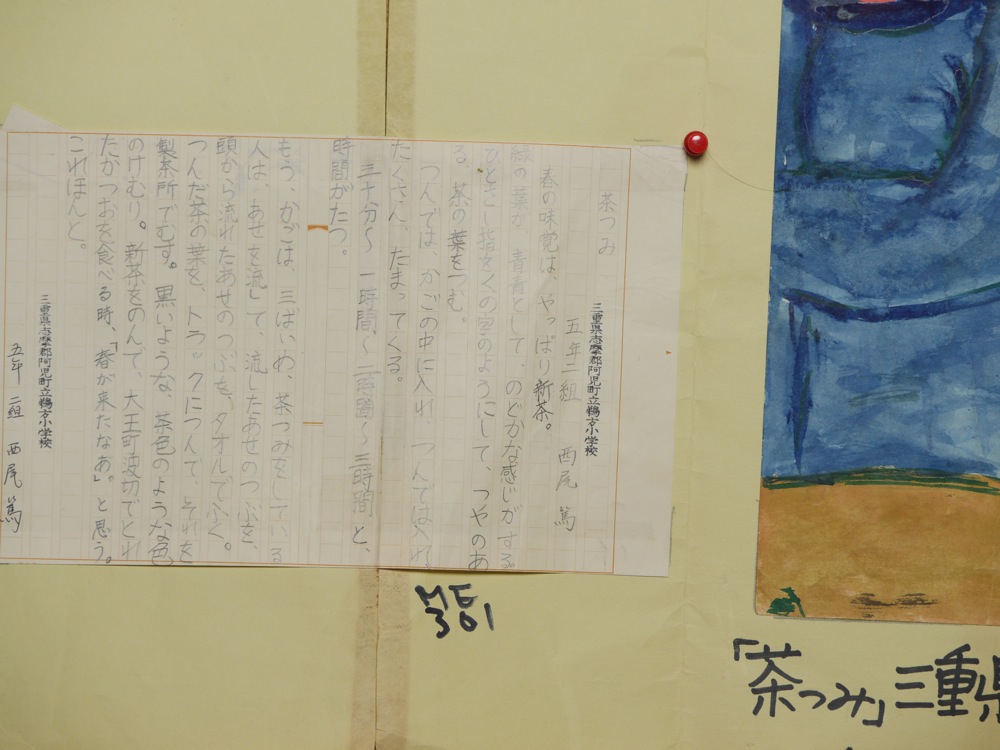 茶つみ
三重県志摩郡阿児町立鵜方小学校
五年二組 西尾 篤
春の味覚は、やっぱり新茶。
緑の葉が、青青として、のどかな感じがする。
ひとさし指を、くの字のようにして、つやのあ
る、茶の葉をつむ。
つんでは、かごの中に入れ つんでは入れ
たくさん、たまってくる。
三十分〜一時間、〜二時間〜三時間と、
時間がたつ。
もう、かごは、三ばいめ、茶つみをしている
人は、あせを流して、流したあせのつぶを、
頭から流れたあせのつぶを、タオルでふく。
つんだ茶の葉を、トラックにつんで、それを
製茶所でむす。黒いような、茶色のような色
のけむり。新茶をのんで、大王町波切でとれ
たかつおを食べる時、「春が来たなあ」。と思う。
これほんと。
三重県志摩郡阿児町立鵜方小学校
五年 二組 西尾 篤
ME
301
「茶つみ」三重県